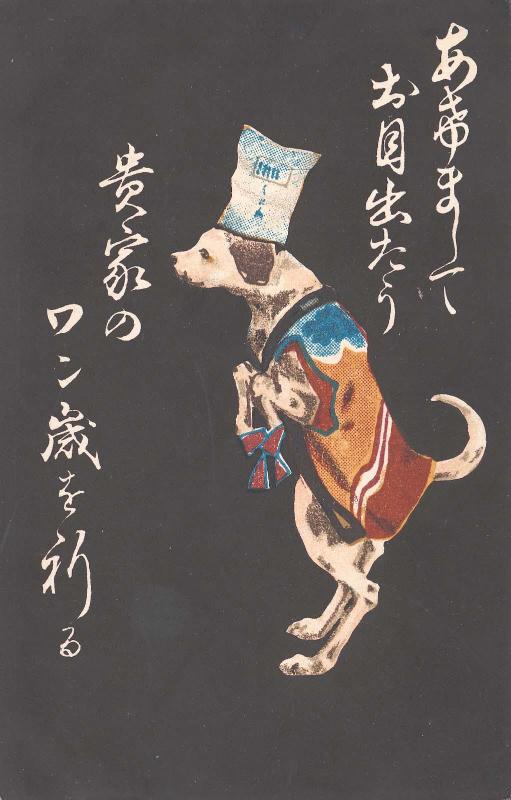 あけまして
お目出たう
貴家の
ワン歳を祈る